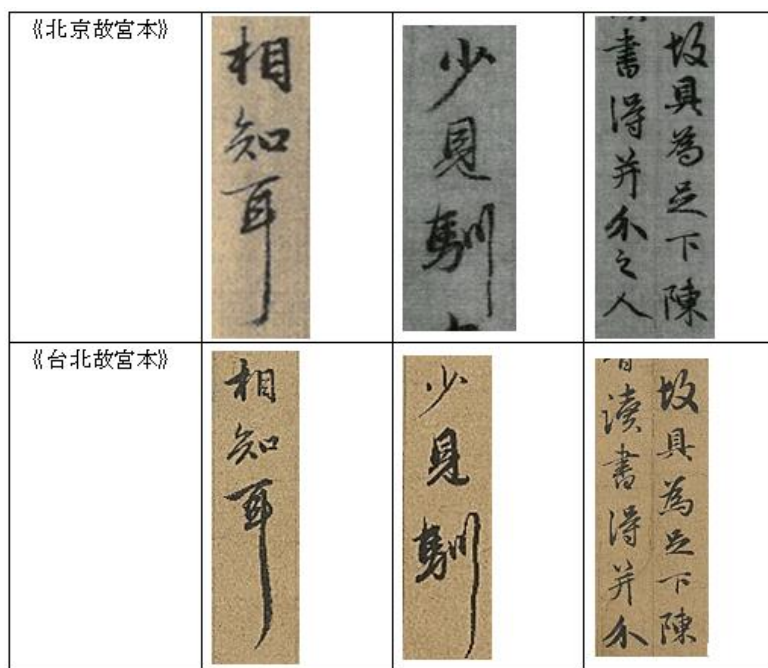 《北京故宮本》
相知耳
少見馴
故具為足下陳
書得并介之人
《台北故宮本》
相知耳
少見馴
故具為足下陳
讀書得并介